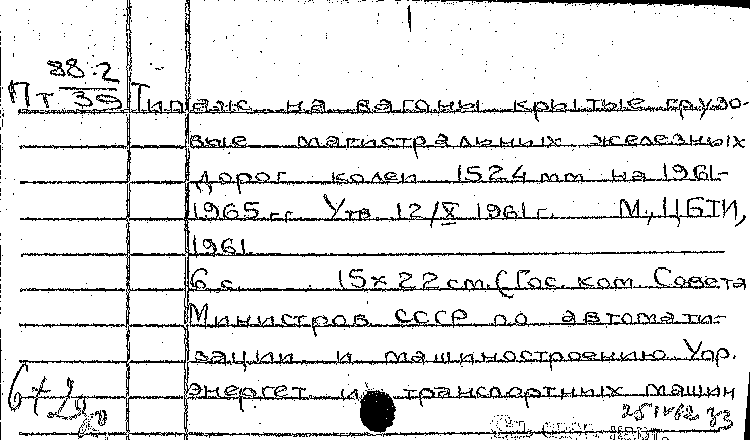 88.2
Пт 35 Типаж на вагоны крытые грузо-
вые магистральных железных
дорог колеи 1524 mm на 1961-
1965 гг. Утв. 12/X 1961 г. М., ЦБТИ,
1961.
6 с. 15x22 см. (Гос. ком. Совета
Министров СССР по автомати-
зации и машиностроению Упр.
энергет. и транспортных машин